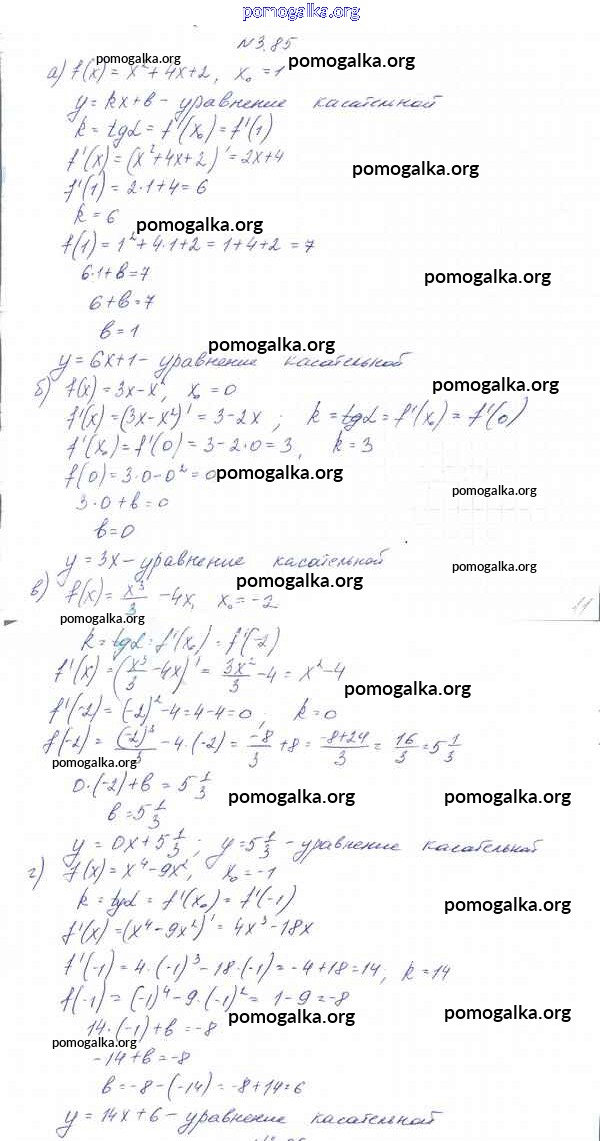 pomogalka.org
N3.85
pomogalka.org
pomogalka.org
а) f(x) = x² + 4x + 2, x₀ = 1
y = kx + b - уравнение касательной
k = tgα = f'(x₀) = f'(1)
f'(x) = (x² + 4x + 2)' = 2x + 4
pomogalka.org
f'(1) = 2·1 + 4 = 6
k = 6
pomogalka.org
f(1) = 1² + 4·1 + 2 = 1 + 4 + 2 = 7
6·1 + b = 7
pomogalka.org
6 + b = 7
b = 1
pomogalka.org
y = 6x + 1 - уравнение касательной
pomogalka.org
б) f(x) = 3x - x², x₀ = 0
f'(x) = (3x - x²)' = 3 - 2x ; k = tgα = f'(x₀) = f'(0)
f'(x₀) = f'(0) = 3 - 2·0 = 3, k = 3
pomogalka.org
f(0) = 3·0 - 0² = 0
pomogalka.org
3·0 + b = 0
b = 0
y = 3x - уравнение касательной
pomogalka.org
pomogalka.org
в) f(x) = x³/3 - 4x, x₀ = -2
11
pomogalka.org
k = tgα = f'(x₀) = f'(-2)
f'(x) = (x³/3 - 4x)' = 3x²/3 - 4 = x² - 4
pomogalka.org
f'(-2) = (-2)² - 4 = 4 - 4 = 0 ; k = 0
f(-2) = (-2)³/3 - 4·(-2) = -8/3 + 8 = -8+24/3 = 16/3 = 5 1/3
pomogalka.org
0·(-2) + b = 5 1/3
pomogalka.org
pomogalka.org
b = 5 1/3
y = 0x + 5 1/3 ; y = 5 1/3 - уравнение касательной
г) f(x) = x⁴ - 9x², x₀ = -1
k = tgα = f'(x₀) = f'(-1)
pomogalka.org
f'(x) = (x⁴ - 9x²)' = 4x³ - 18x
f'(-1) = 4·(-1)³ - 18·(-1) = -4 + 18 = 14 ; k = 14
f(-1) = (-1)⁴ - 9·(-1)² = 1 - 9 = -8
pomogalka.org
pomogalka.org
14·(-1) + b = -8
pomogalka.org
-14 + b = -8
b = -8 - (-14) = -8 + 14 = 6
y = 14x + 6 - уравнение касательной